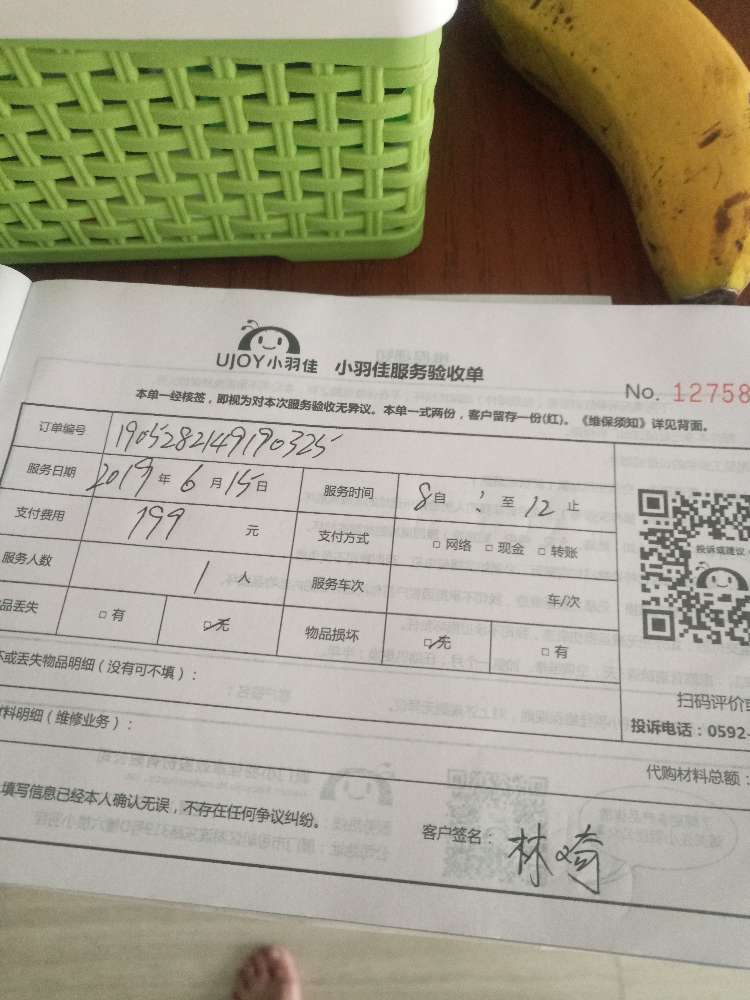 UJOY小羽佳 小羽佳服务验收单
No. 12758
本单一经核签，即视为对本次服务验收无异议。本单一式两份，客户留存一份(红)。《维保须知》详见背面。
订单编号 1905282149190325
服务日期 2019年6月15日 服务时间 8自 至12止
支付费用 199 元 支付方式 □网络 □现金 □转账
投诉或建议
服务人数 1人 服务车次 车/次
品丢失 □有 □无 物品损坏 □无 □有
不或丢失物品明细（没有可不填）：
扫码评价
材料明细（维修业务）：
投诉电话：0592-
代购材料总额：
填写信息已经本人确认无误，不存在任何争议纠纷。
客户签名：林崎